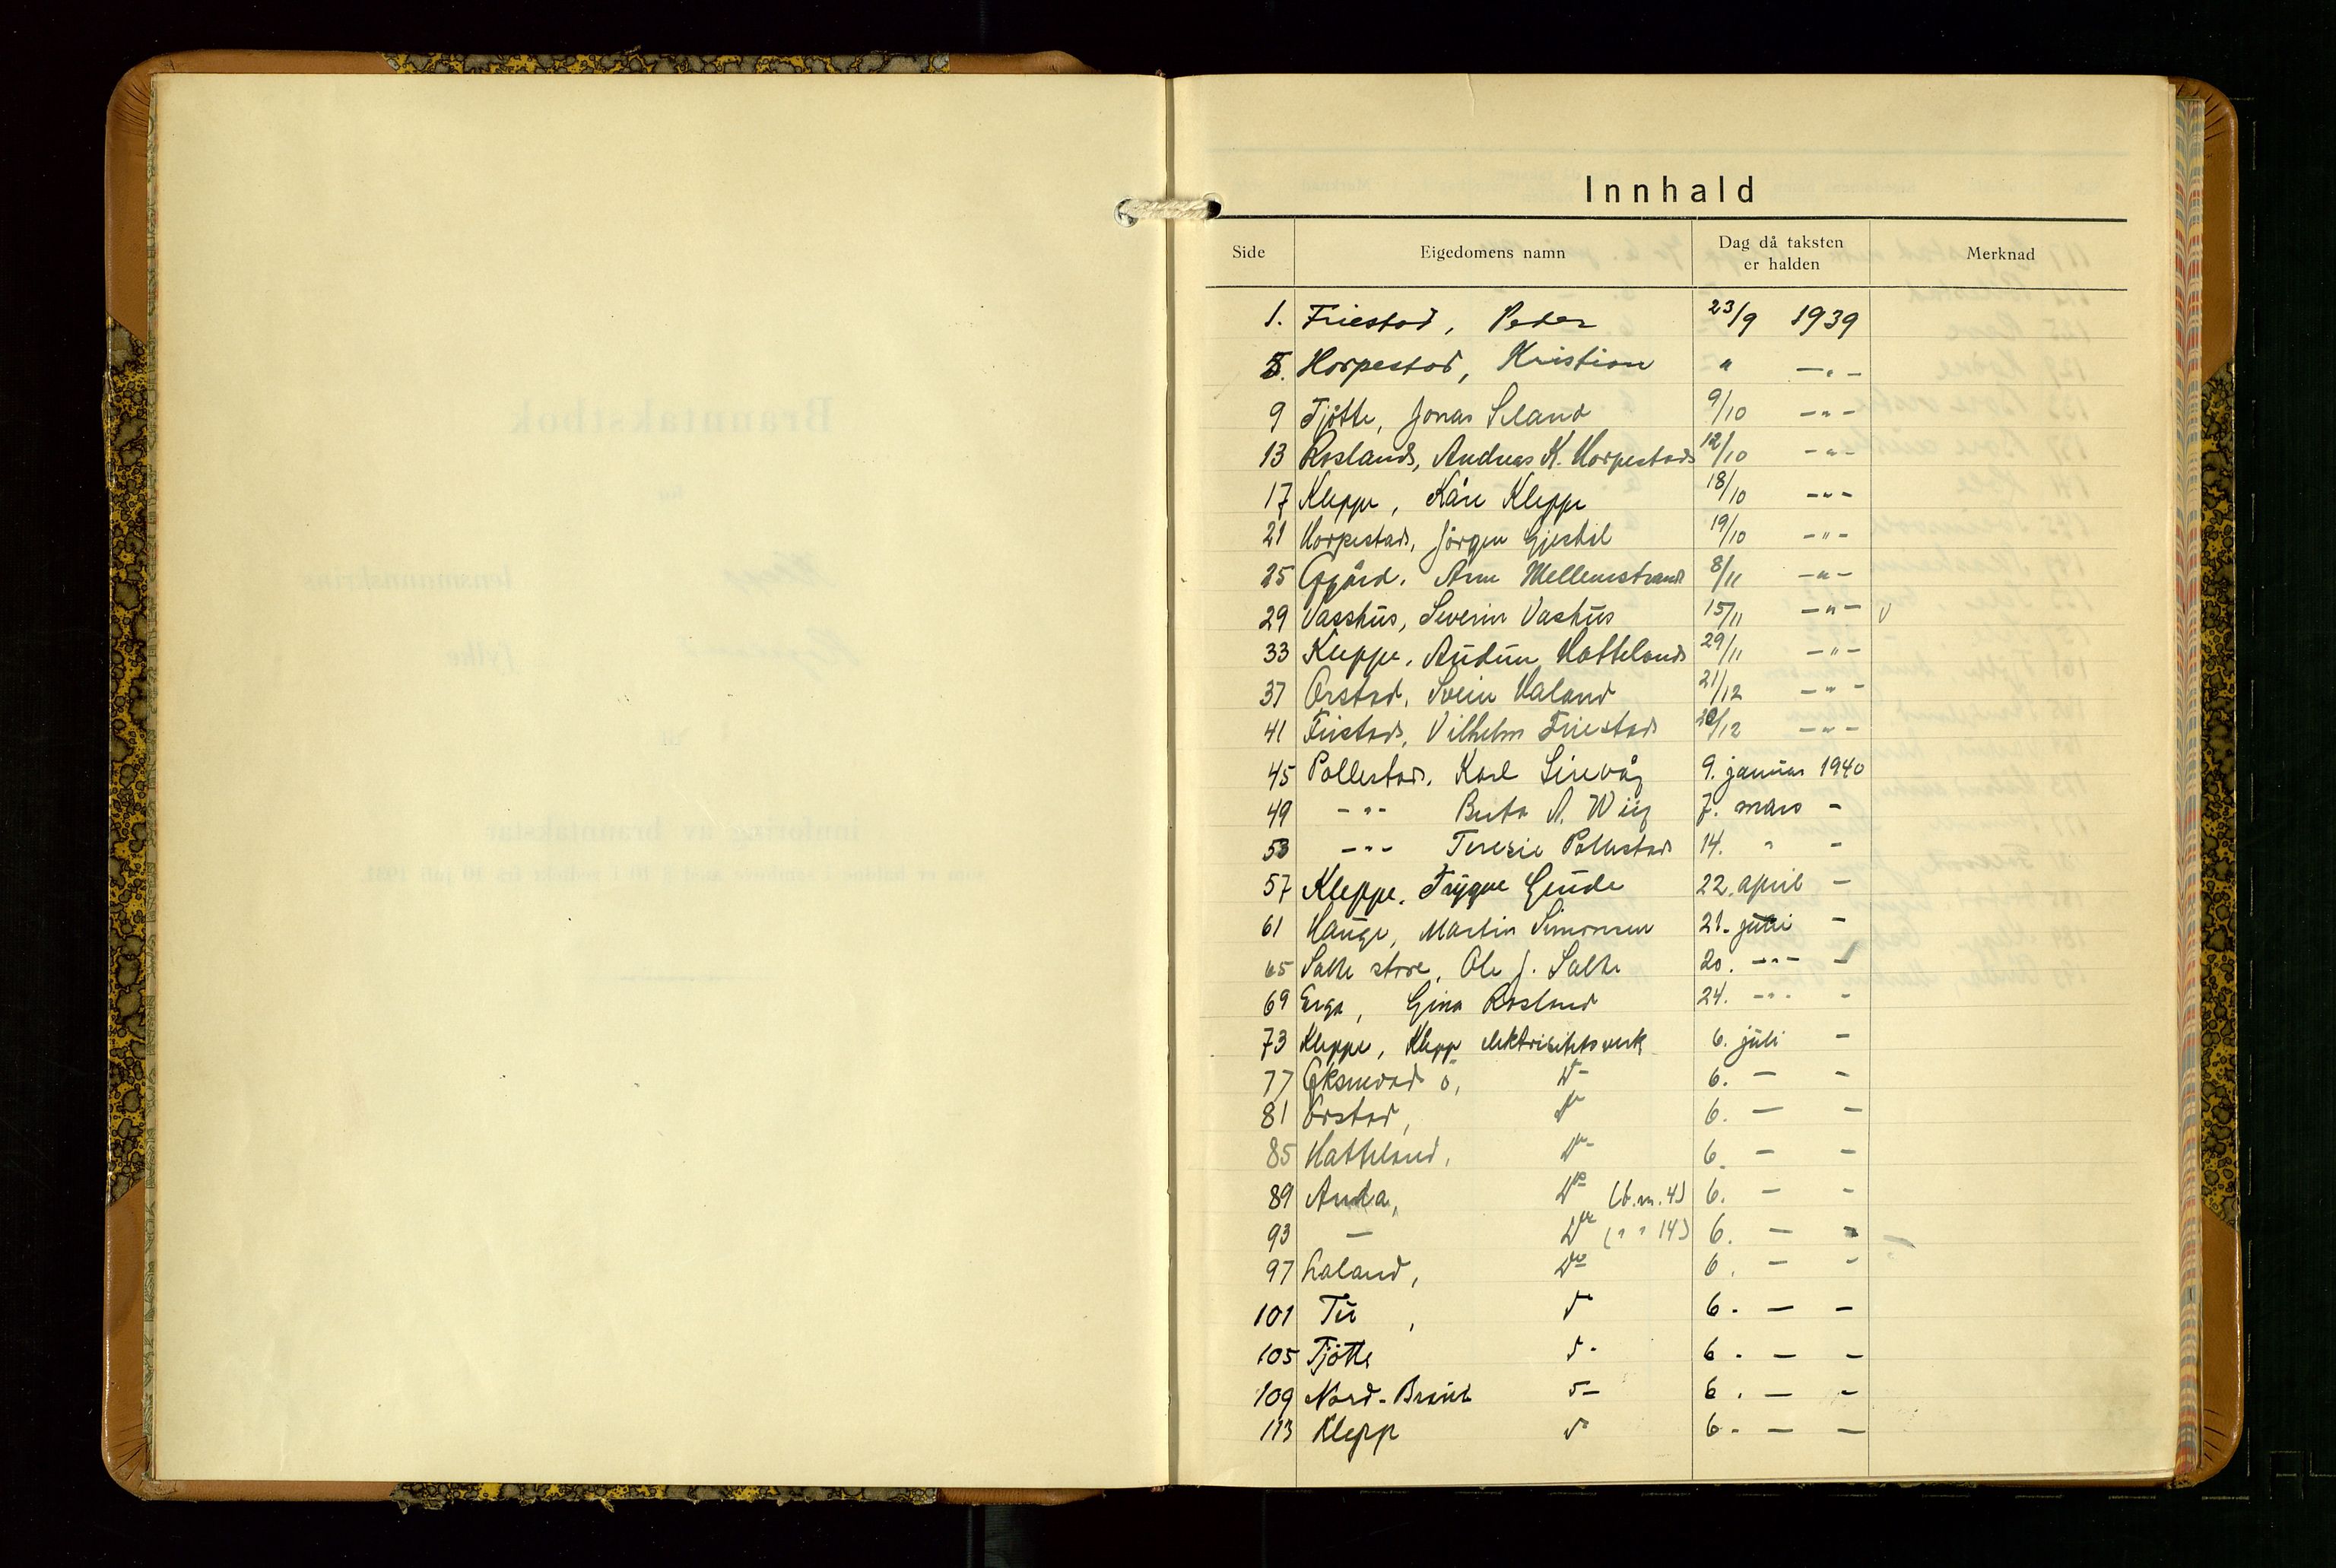 Innhald
Side Eigedomens namn Dag då taksten er halden Merknad
1. Friestad, Peder 23/9 1939
5. Horpestad, Kristian " — " —
9 Tjøtte, Jonas Seland 9/10 — " —
13 Roslands, Andreas K. Horpestads 12/10 — " —
17 Kleppe, Kåre Kleppe 18/10 — " —
21 Horpestads, Jørgen Gjestel 19/10 — " —
25 Øygård. Arne Mellemstrand 8/11 — " —
29 Vasshus, Severin Vashus 15/11 — " — v
33 Kleppe. Audun Hattelands 29/11 — " —
37 Orstad. Svein Haland 21/12 — " —
41 Fristads, Vilhelm Friestads /12 — " —
45 Pollestads. Karl Sirevåg 9. januar 1940
49 — " — Berta A. Wiig 7. mars —
53 — " — Teresie Pollestads 14. " —
57 Kleppe. Trygve Gude 22. april —
61 Hauge, Martin Simonsen 21. —
65 Salte store, Ole J. Salte 20. — " — —
69 Erga, Gina Rosland 24. — " — —
73 Kleppe, Klepp elektrisitetsverk 6. juli —
77 Øksnevad ø, do 6. — —
81 Orstad, do 6. — —
85 Hatteland, do 6. — —
89 Anda, do (b.n. 4) 6. — —
93 — do (" " 14) 6. — —
97 Laland, do 6. — —
101 Tu, do 6. — —
105 Tjøtte do 6. — —
109 Nord-Braut do 6. — —
113 Klepp do 6. — —